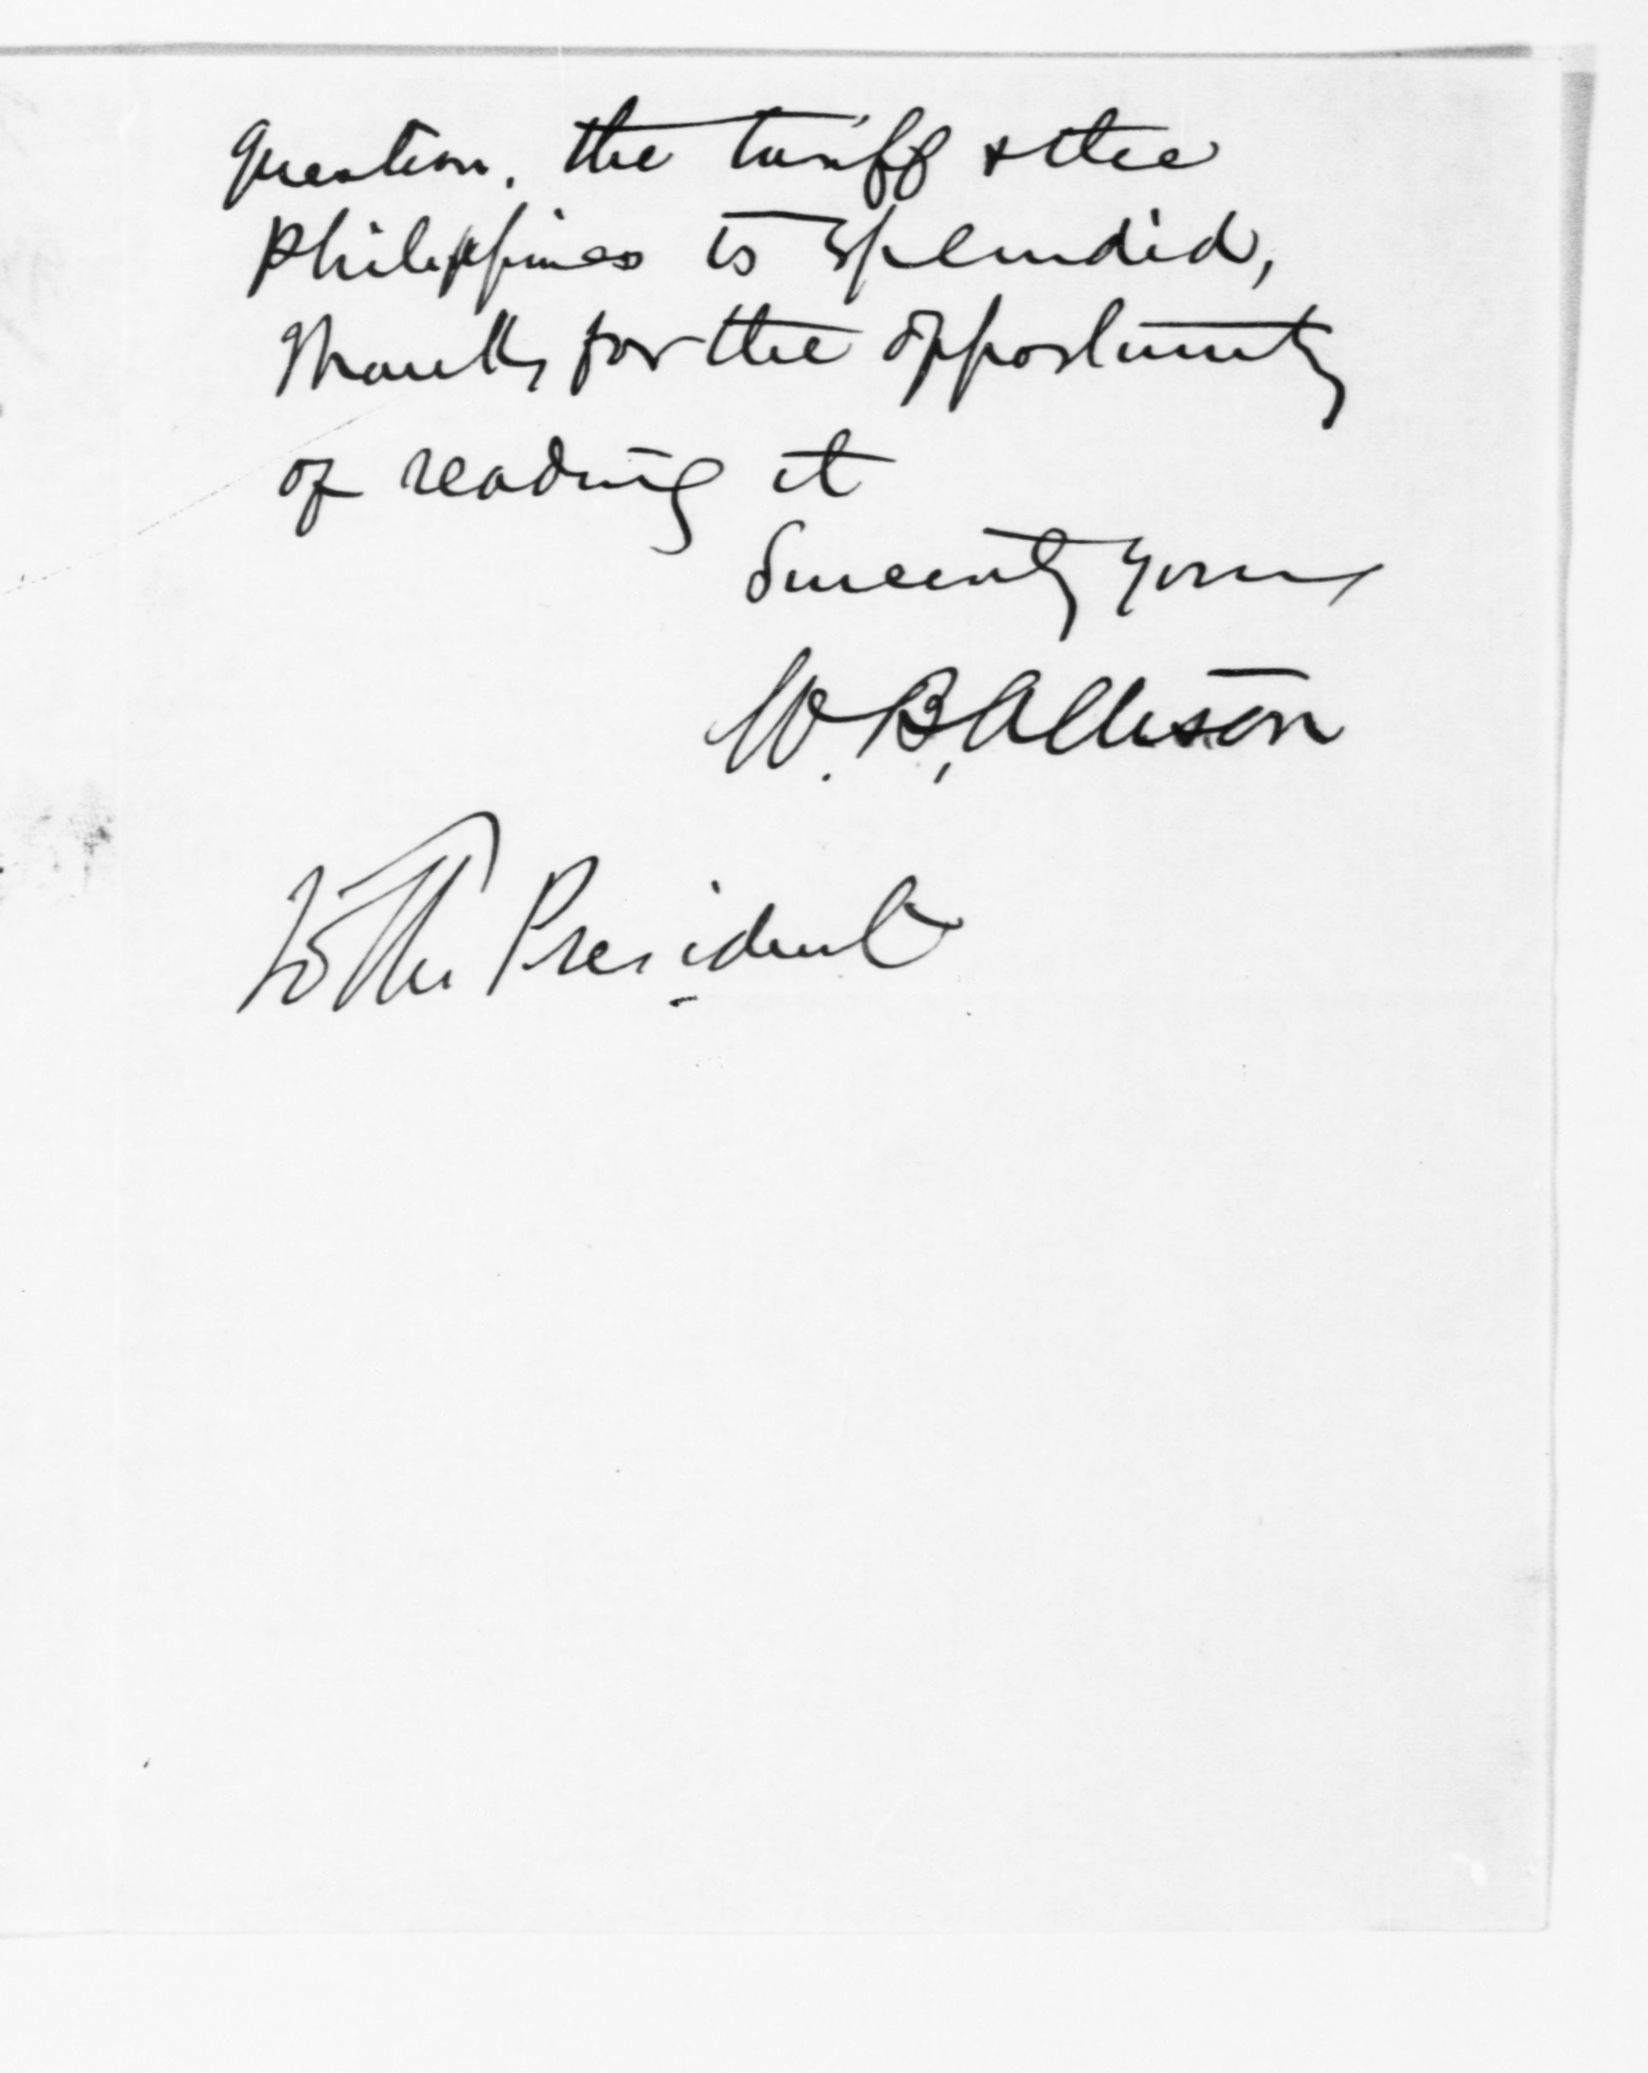 question, the tariff & the
Philippines is splendid,
Thanks for the opportunity
of reading it
Sincerely yours
W. B. Allison
To The President